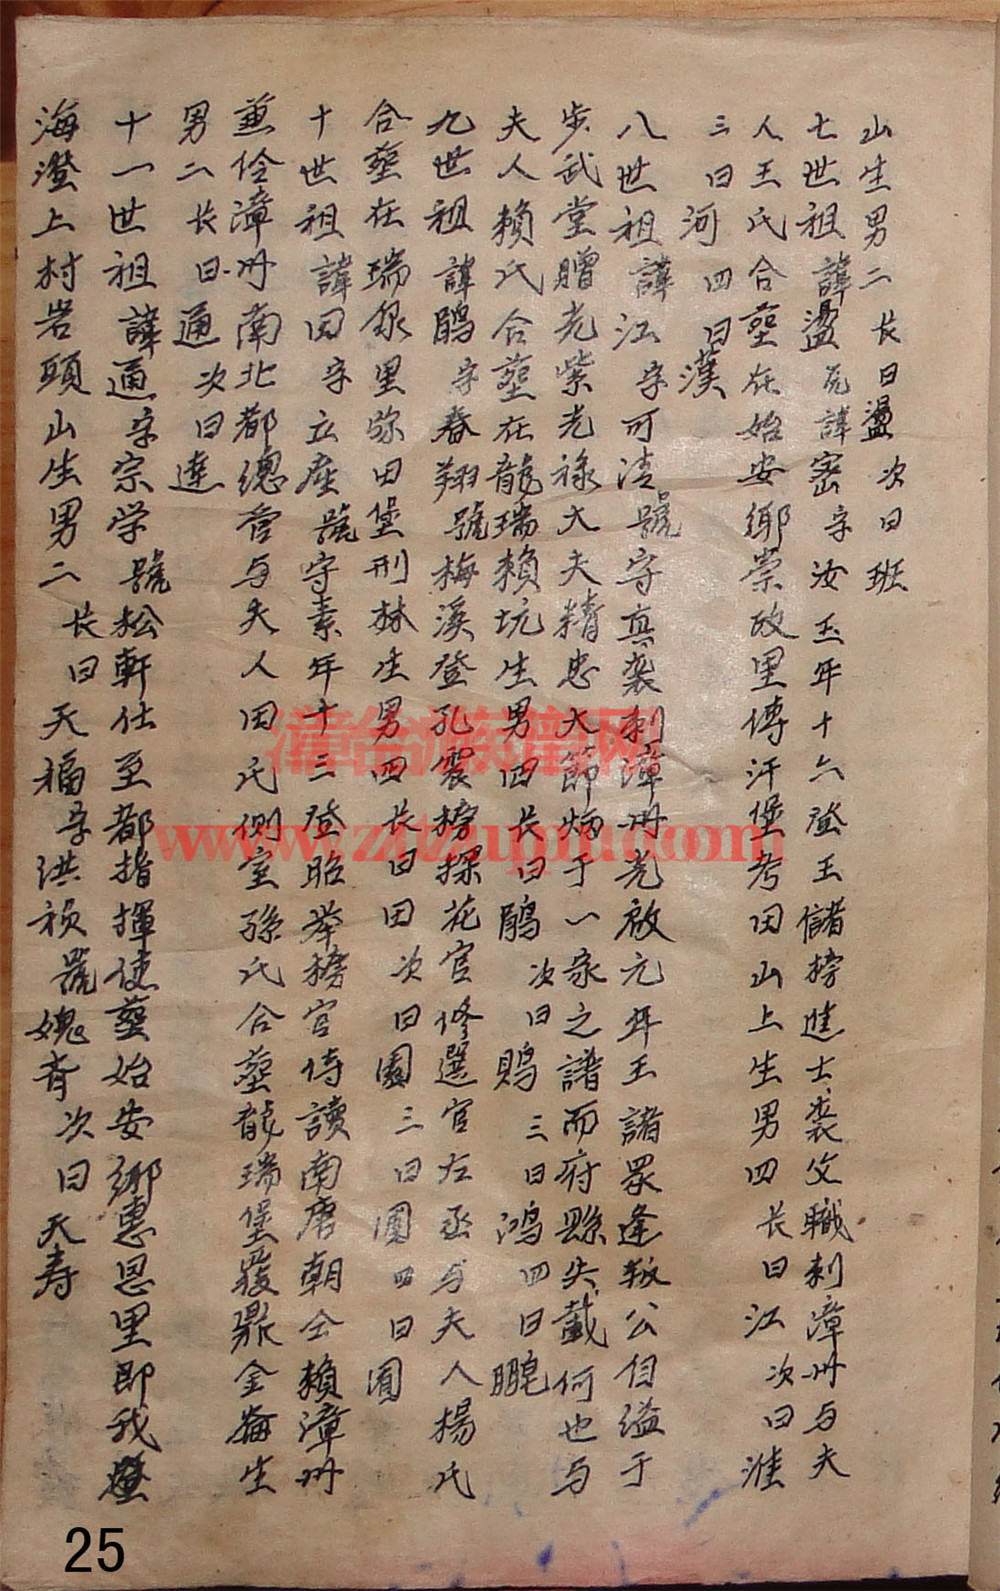 山生男二长曰盪次曰班
七世祖諱盪 諱密字汝玉年十六登王儲榜進士袭父職刺漳州与夫
人王氏合塟在始安鄉崇政里傅汗堡考田山上生男四长曰江次曰淮
三曰河四曰漢
八世祖諱江字可清號守真袭刺漳州光啟元年王諸眾逢叛公自縊于
步武堂贈光紫光禄大夫精忠大節炳于一家之譜而府縣失載何也与
夫人赖氏合塟在龍瑞赖坑生男四长曰鹃次曰鹍三曰鸿四曰鹏
九世祖諱鹃字春翔號梅溪登孔震榜探花官修選官左丞与夫人楊氏
合塟在瑞録里弥田堡刑林生男四长曰田次曰園三曰圓四曰圃
十世祖諱田字立座號守素年十三登昭举榜官侍讀南唐朝仝赖漳州
兼伶漳州南北都總管与夫人田氏侧室孫氏合塟龍瑞堡覆鼎金崙生
男二长曰通次曰達
十一世祖諱通字宗学號松軒仕至都指揮使塟始安鄉惠恩里即我
海澄上村岩頭山生男二长曰天福字洪祯號媿斉次曰天寿
漳台族谱网
www.ztzupu.com
25